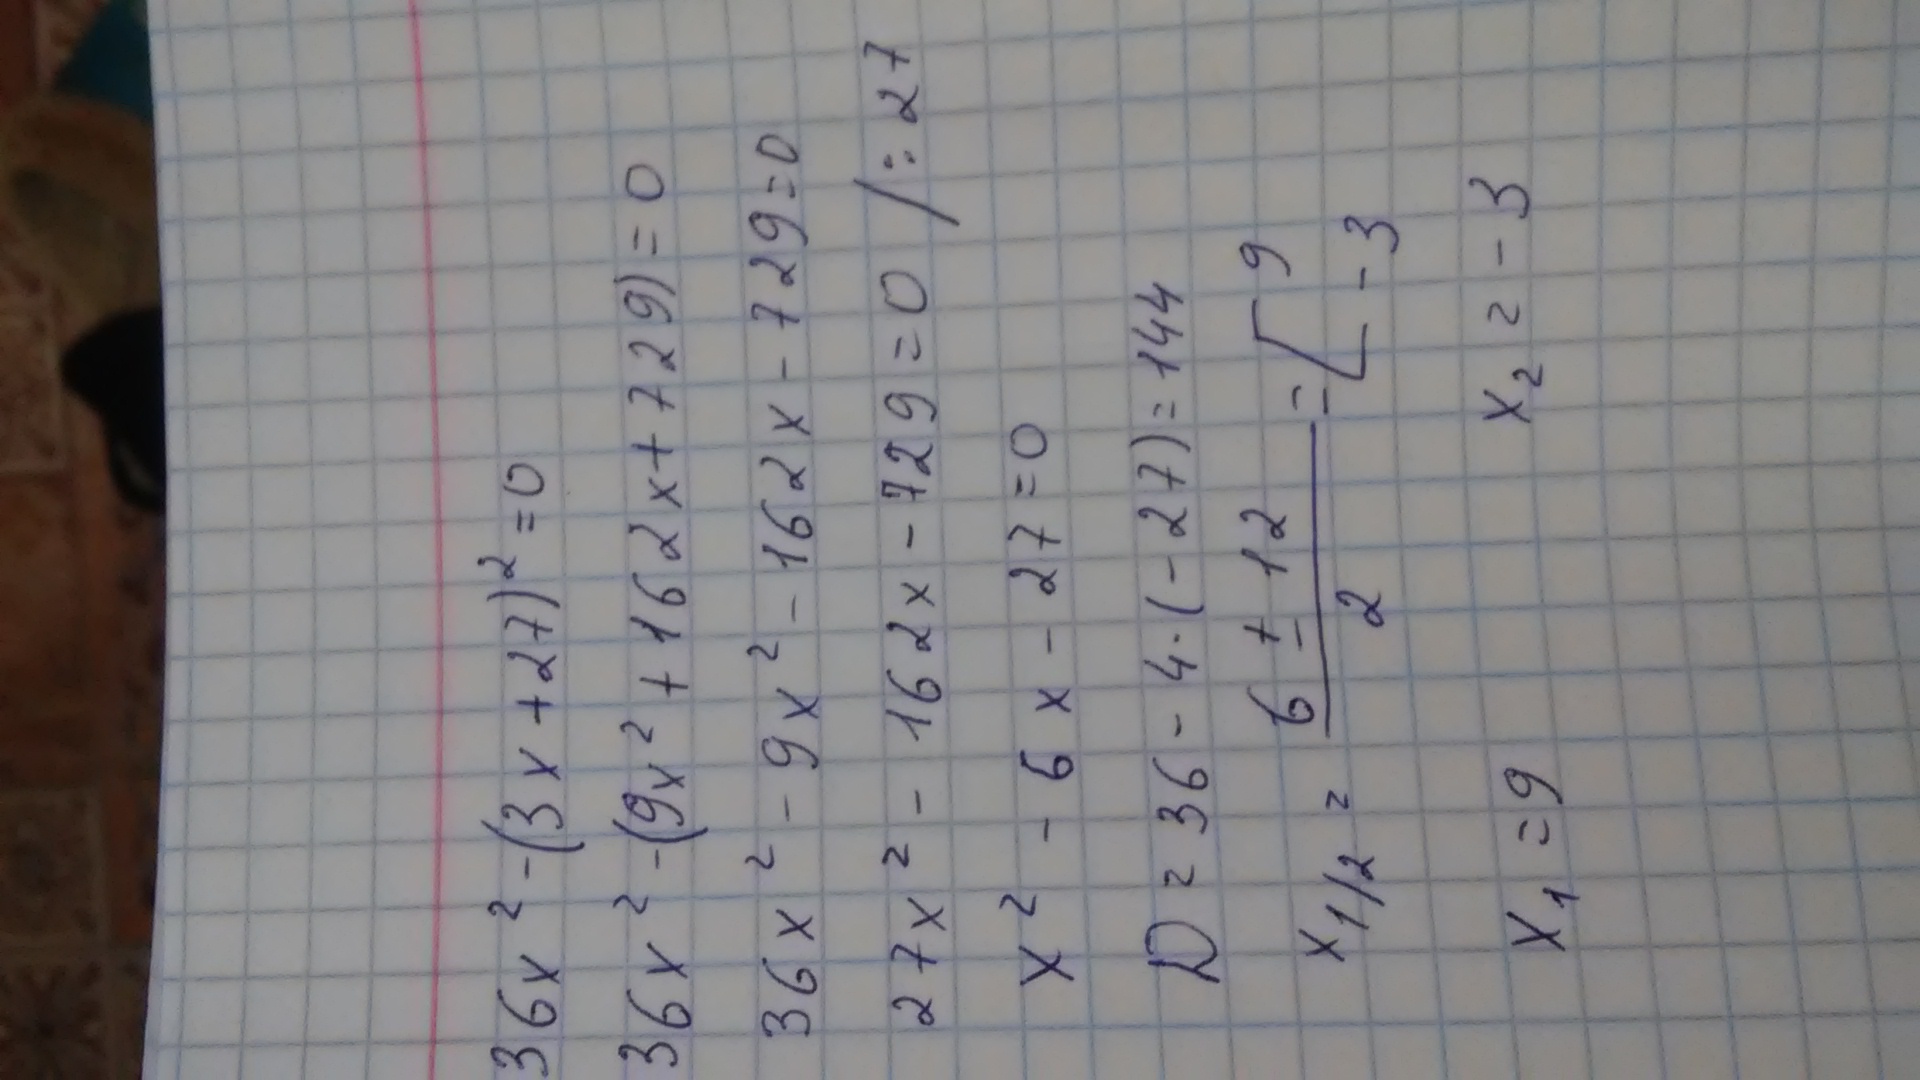 36x² -(3x+27)² =0
36x² -(9x² +162x+729)=0
36x² -9x² -162x-729=0
27x² -162x-729=0 /:27
x² -6x-27=0
D=36-4·(-27)=144
x₁/₂ = (6±12)/2 = [9 -3
x₁=9 x₂=-3